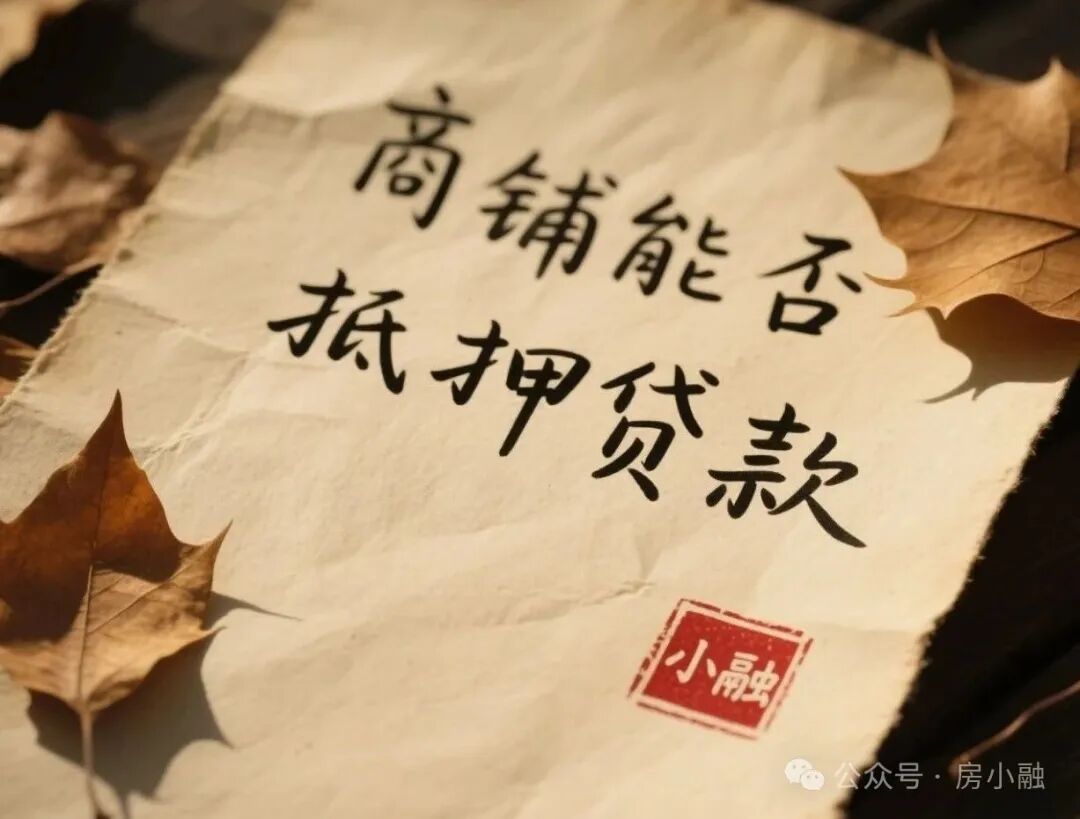 商铺能否
抵押贷款
小融
公众号·房小融